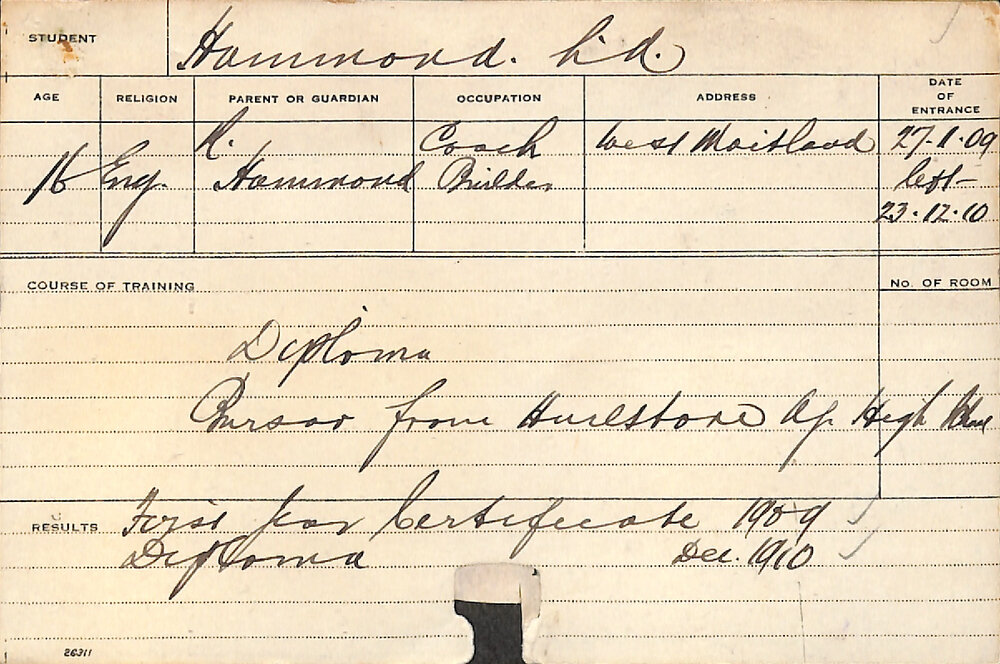 STUDENT Hammond.
AGE RELIGION PARENT OR GUARDIAN OCCUPATION ADDRESS DATE OF ENTRANCE
16 Eng. R. Hammond Coach Builder West Maitland 27.1.09
left
23.12.10
COURSE OF TRAINING No. OF ROOM
Diploma
Bursar from Hurlstone Ag. High School
RESULTS First Year Certificate 1909
Diploma Dec. 1910
26311